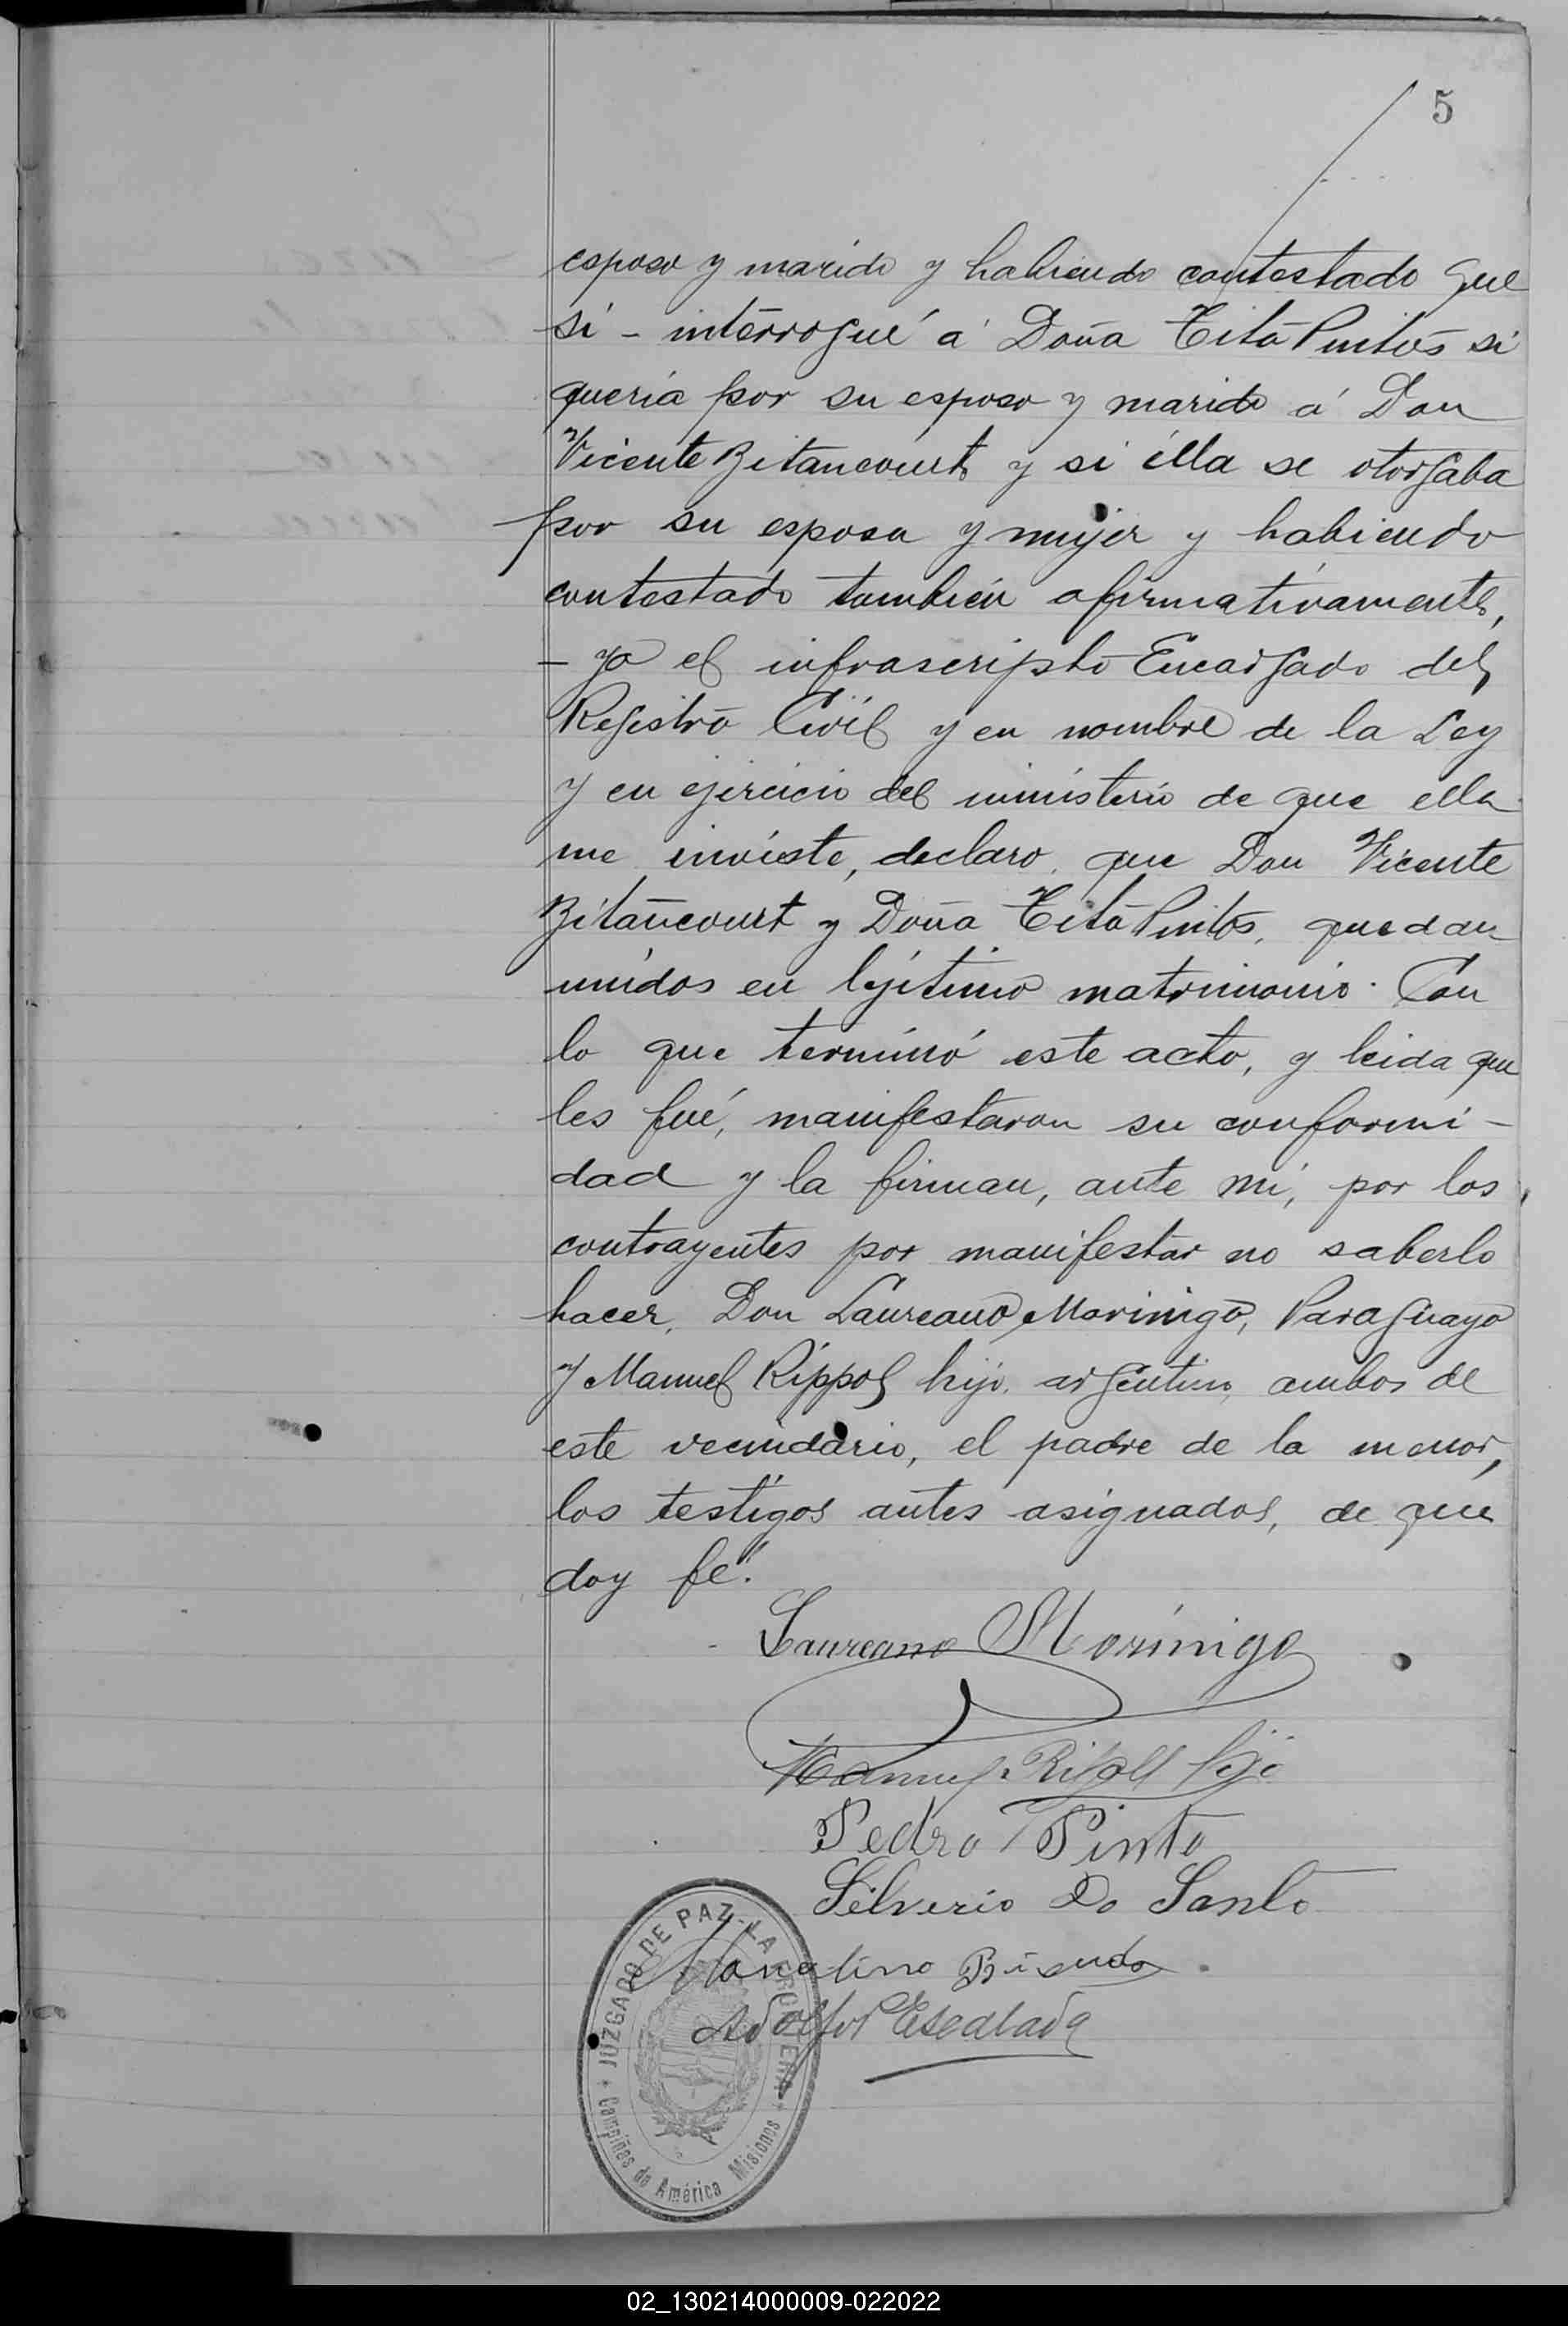 5
esposo y marido y habiendo contestado que
sí - interrogué á Doña Tita Pintos si
quería por su esposo y marido á Don
Vicente Bitancourt y si élla se otorgaba
por su esposa y mujer y habiendo
contestado tambien afirmativamente,
- yo el infrascripto Encargado del
Registro Civil y en nombre de la Ley
y en ejercicio del ministerio de que ella
me inviste, declaro que Don Vicente
Bitancourt y Doña Tita Pintos, quedan
unidos en lejítimo matrimonio. Con
lo que terminó este acto, y leida que
les fué, manifestaron su conformi-
dad y la firman, ante mí, por los
contrayentes por manifestar no saberlo
hacer, Don Laureano Morinigo, Paraguayo
y Manuel Rippol hijo, argentino, ambos de
este vecindario, el padre de la menor,
los testigos antes asignados, de que
doy fé.
Laureano Morínigo
Manuel Ripoll hijo
Pedro Pinto
Silverio Do Santo
Adolfo Escalada
JUZGADO DE PAZ - LA FRONTERA
Campiñas de América Misiones
02_130214000009-022022